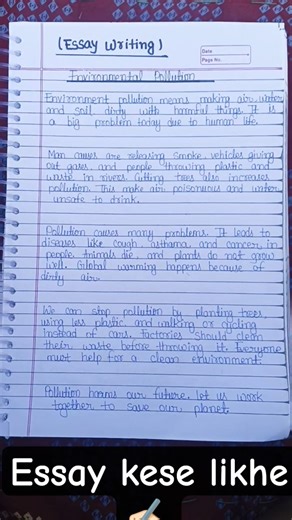 (Essay Writing)
Date
Page No.
Environmental Pollution
Environment pollution means making air, water
and soil dirty with harmful things. It is
a big problem today due to human life.
Man causes are releasing smoke, vehicles giving
out gases, and people throwing plastic and
waste in rivers. Cutting trees also increases
pollution. This make air poisonous and water
unsafe to drink.
Pollution causes many problems. It leads to
diseases like cough, asthama, and cancer in
people. Animals die, and plants do not grow
well. Global warming happens because of
dirty air.
We can stop pollution by planting trees,
using less plastic, and walking or cycling
instead of cars. Factories should clean
their waste before throwing it. Everyone
must help for a clean environment.
Pollution harms our future. let us work
together to save our planet.
Essay kese likhe ✍🏻